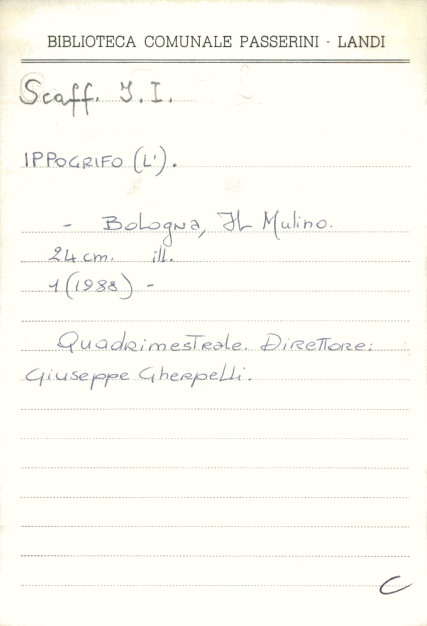 BIBLIOTECA COMUNALE PASSERINI - LANDI
Scaff. J. I.
IPPOGRIFO (L').
- Bologna, IL Mulino.
24 cm. ill.
1 (1988) -
Quadrimestrale. Direttore:
Giuseppe Gherpelli.
C